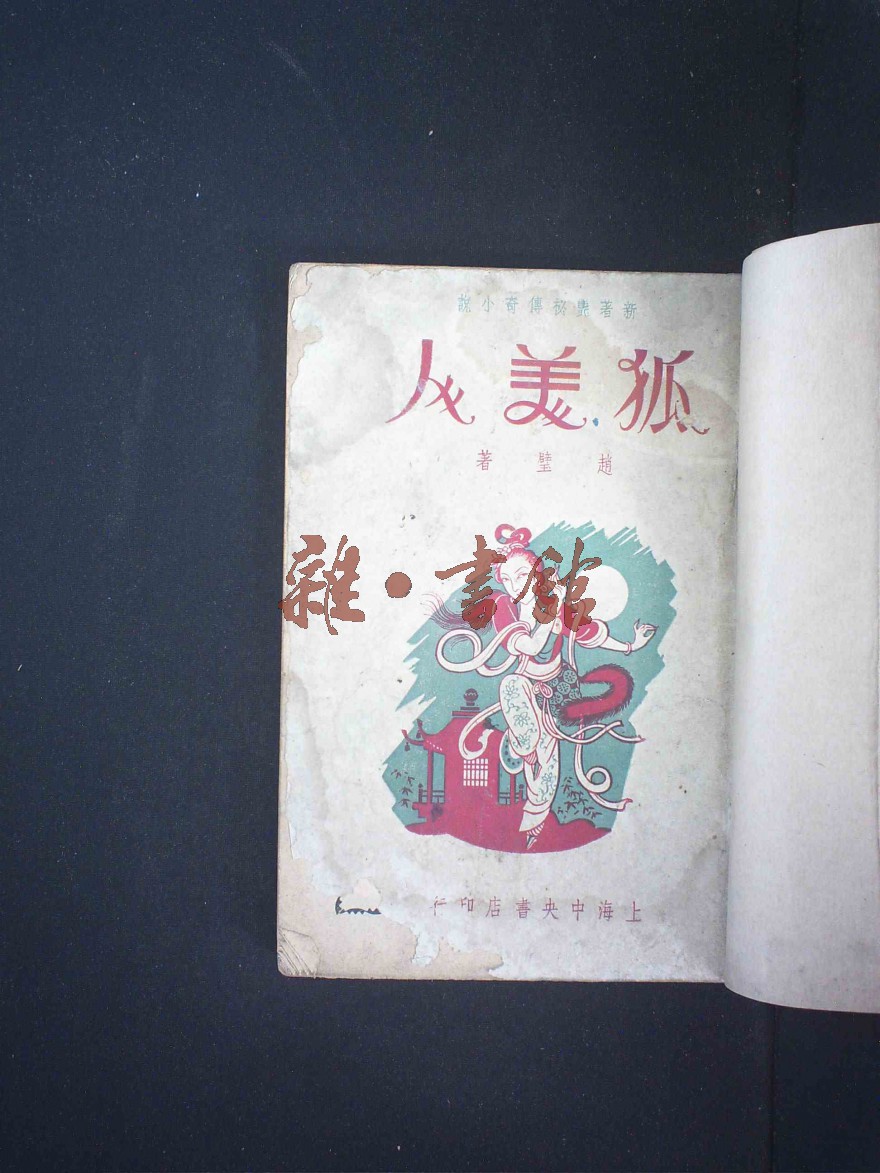 新著艷秘傳奇小說
狐美人
趙璧著
雜·書館
上海中央書店印行